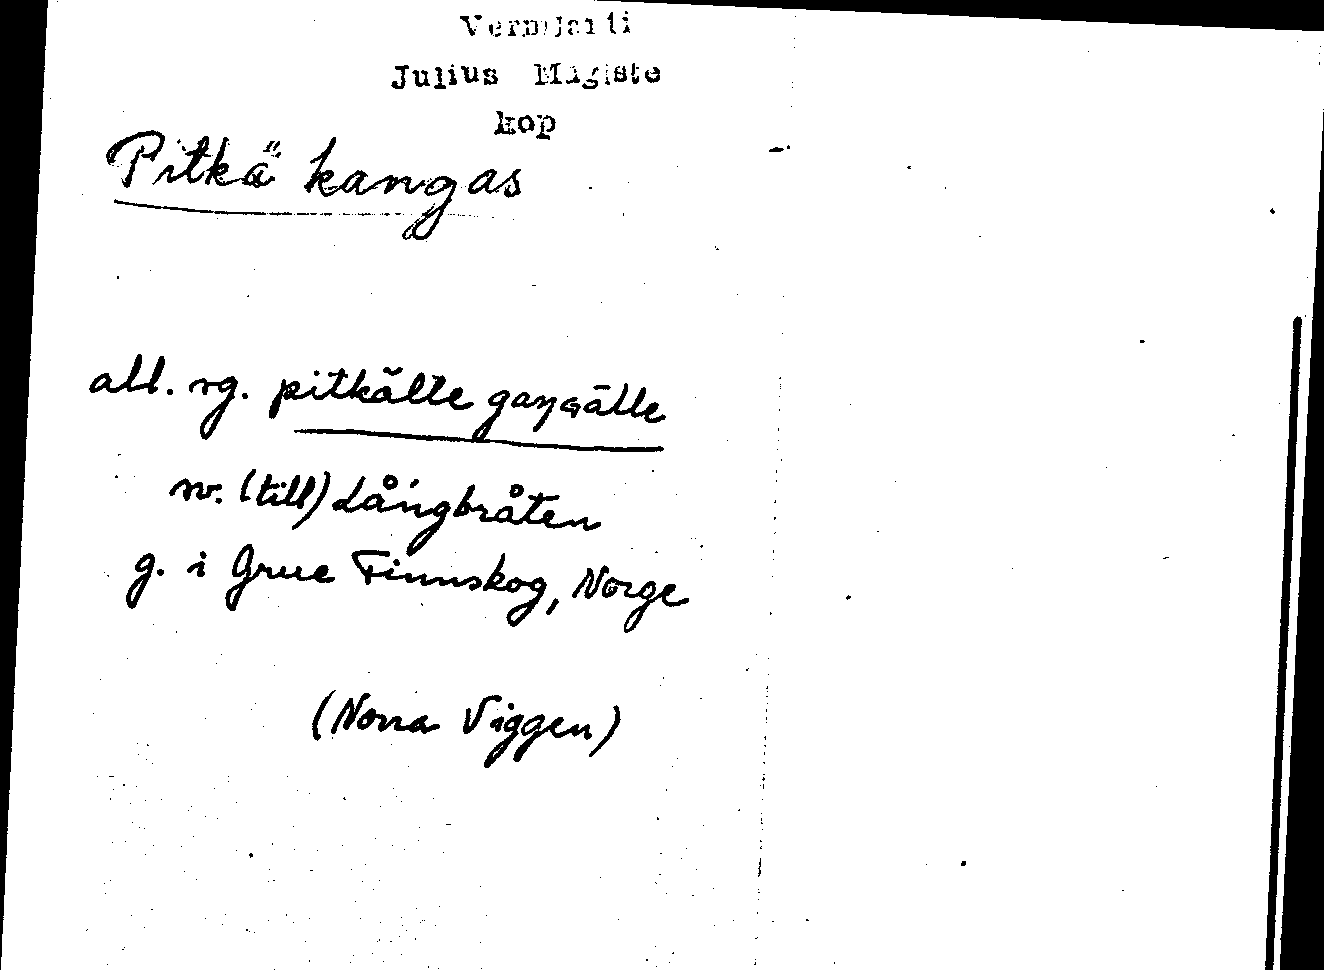 Vermlanti
Julius Mägiste
kop
Pitkä kangas
all. sg. pitkälle gaŋgālle
sv. (till) Långbråten
g. i Grue Finnskog, Norge
(Norra Viggen)